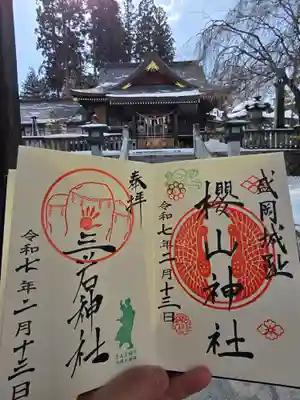 盛岡城址
櫻山神社
令和七年二月十三日
奉拝
三ツ石神社
令和七年二月十三日